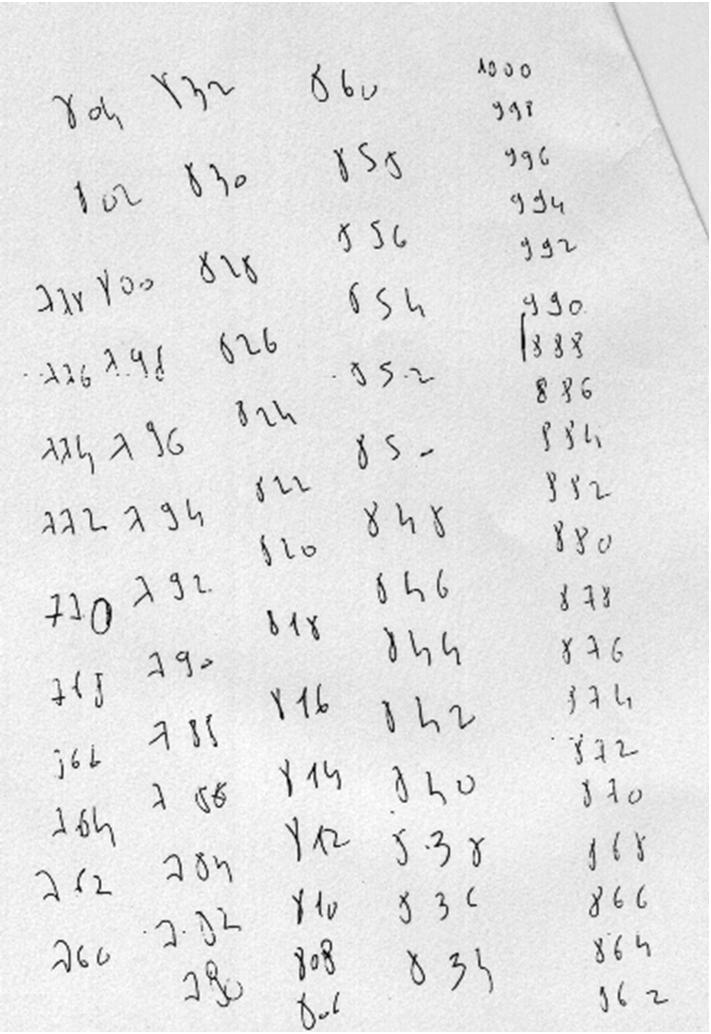 1000
998
996
994
992
990
888
886
884
882
880
878
876
874
872
870
868
866
864
862
860
858
856
854
852
850
848
846
844
842
840
838
836
834
832
830
828
826
824
822
820
818
816
814
812
810
808
806
804
802
800
798
796
794
792
790
788
786
784
782
780
778
776
774
772
770
768
766
764
762
760